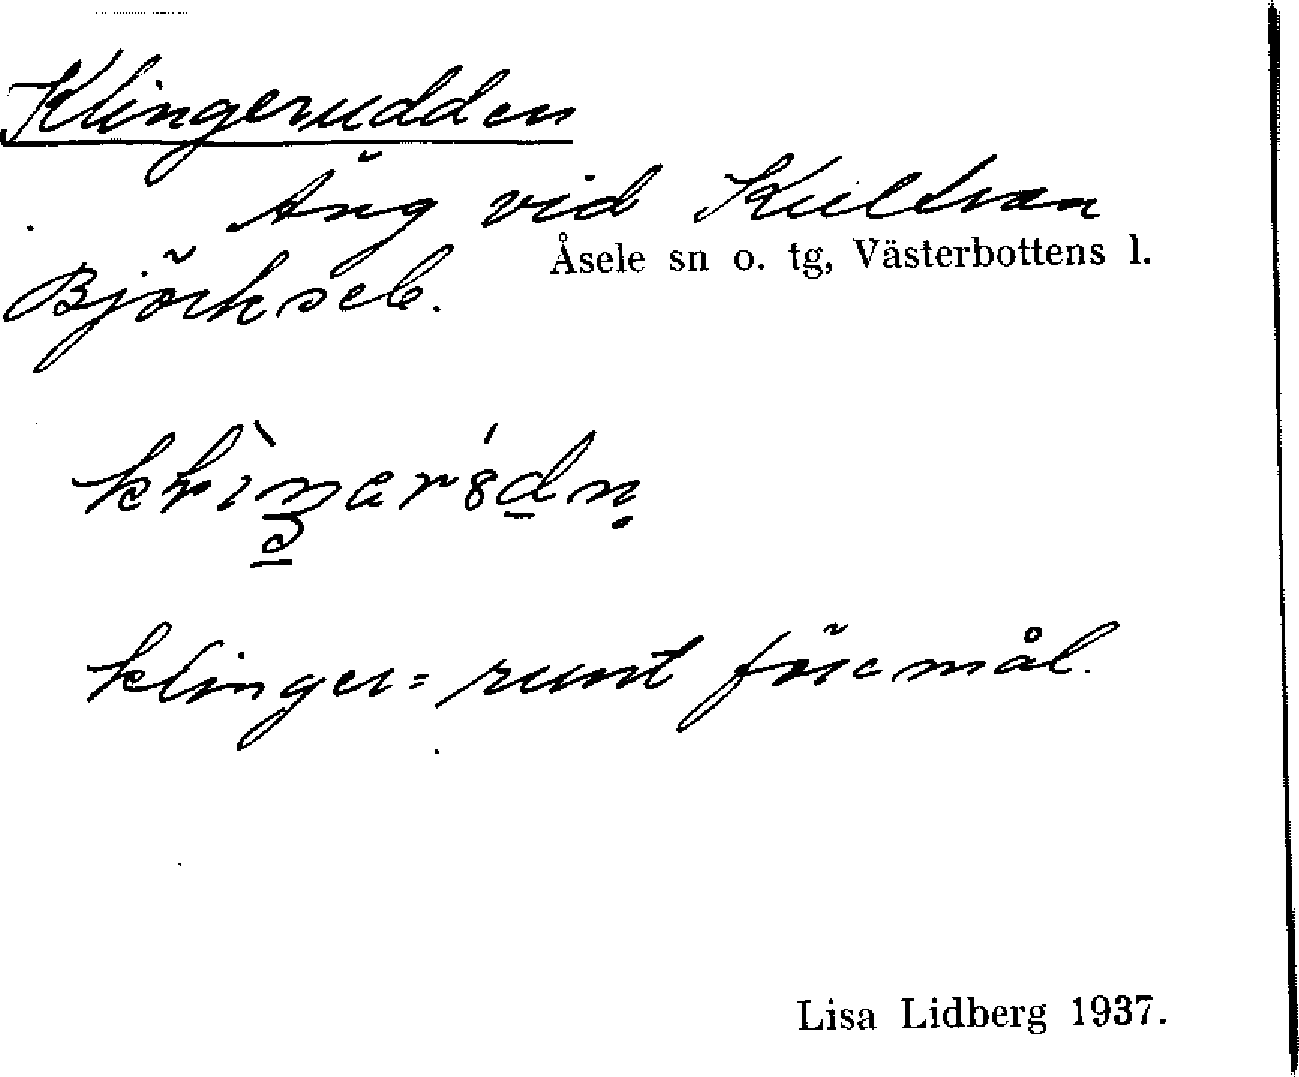 Klingerudden
Äng vid Kultran
Åsele sn o. tg, Västerbottens l.
Björksele.
klinger= runt föremål.
Lisa Lidberg 1937.